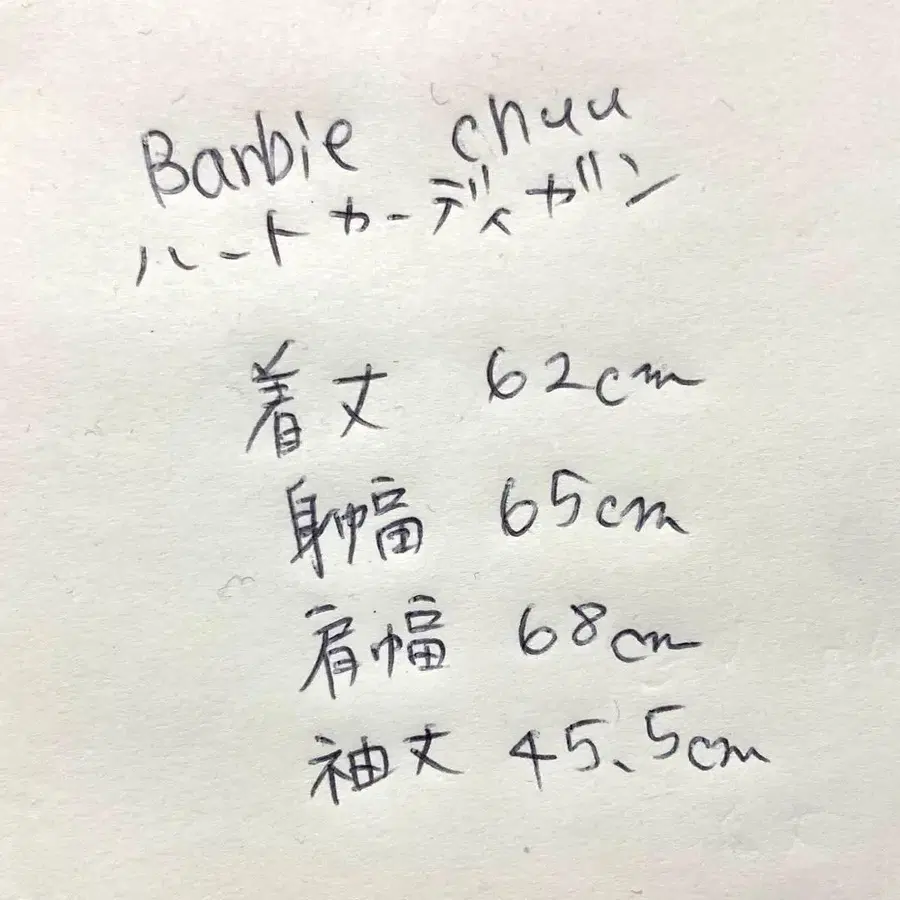 Barbie chuu
ハートカーディガン
着丈 62cm
身幅 65cm
肩幅 68cm
袖丈 45.5cm